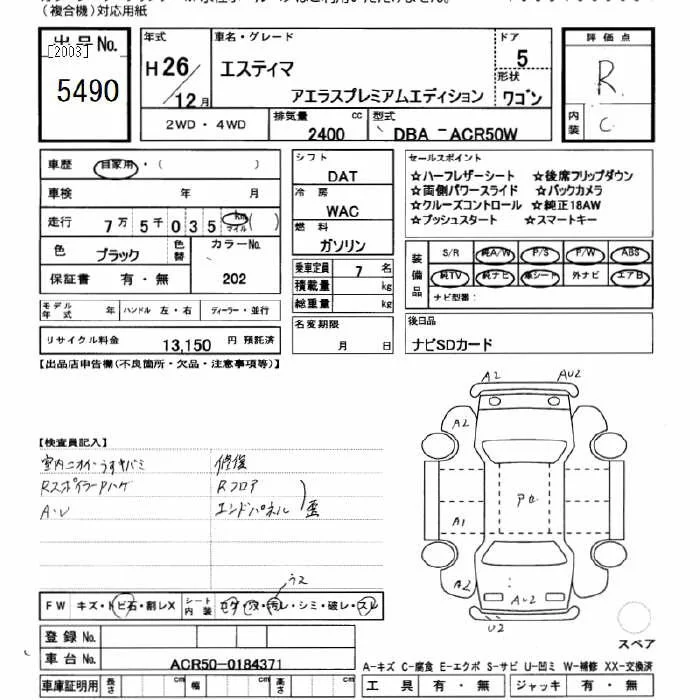 (複合機)対応用紙
出品No.
[2003]
5490
年式
H26/12月
車名・グレード
エスティマ
アエラスプレミアムエディション
ドア
5
形状
ワゴン
評価点
R
内装
C
2WD・4WD
排気量
2400 cc
型式
DBA - ACR50W
車歴 自家用・( )
車検 年 月
走行 7万5千035 km マイル ( )
色 ブラック 色替 カラーNo. 202
保証書 有・無
モデル年式 年 ハンドル 左・右 ディーラー・並行
リサイクル料金 13,150 円 預託済
シフト
DAT
冷房
WAC
燃料
ガソリン
乗車定員 7 名
積載量 kg
総重量 kg
名変期限
月 日
セールスポイント
☆ハーフレザーシート ☆後席フリップダウン
☆両側パワースライド ☆バックカメラ
☆クルーズコントロール ☆純正18AW
☆プッシュスタート ☆スマートキー
装備品
S/R 純A/W P/S P/W ABS
純TV 純ナビ 革シート 外ナビ エアB
ナビ型番:
後日品
ナビSDカード
【出品店申告欄(不良箇所・欠品・注意事項等)】
【検査員記入】
室内ニオイ・うすヤバミ
RスポイラーPハゲ
A・U
修復
Rフロア
エンドパネル
歪
FW キズ・トビ石・割レX
シート内装 コゲ・穴・汚レ・シミ・破レ・スレ
うス
登録No.
車台No. ACR50-0184371
車庫証明用 長さ cm 幅 cm 高さ cm
A2
AU2
A2
アセ
A1
A2
AU2
U2
スペア
A-キズ C-腐食 E-エクボ S-サビ U-凹ミ W-補修 XX-交換済
工具 有・無 ジャッキ 有・無